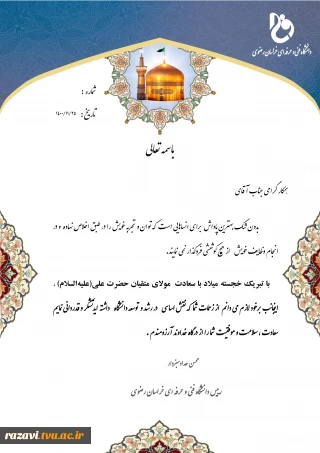 دانشگاه فنی و حرفه ای خراسان رضوی
شماره :
تاریخ: ۱۴۰۰/۱۱/۲۵
باسمه تعالی
همکار گرامی جناب آقای
بدون شک بهترین پاداش برای انسانهایی است که توان و تجربه خویش را در طبق اخلاص نهاده و در
انجام وظایف خویش از هیچ کوششی فروگذار نمی نمایند.
با تبریک خجسته میلاد با سعادت مولای متقیان حضرت علی(علیه‌السلام) ،
اینجانب برخود لازم می دانم از زحمات شما که نقش اساسی در رشد و توسعه دانشگاه داشته اید تشکر و قدردانی نمایم
سعادت ، سلامت و موفقیت شما را از درگاه خداوند آرزومندم .
رییس دانشگاه فنی و حرفه ای خراسان رضوی
razavi.tvu.ac.ir